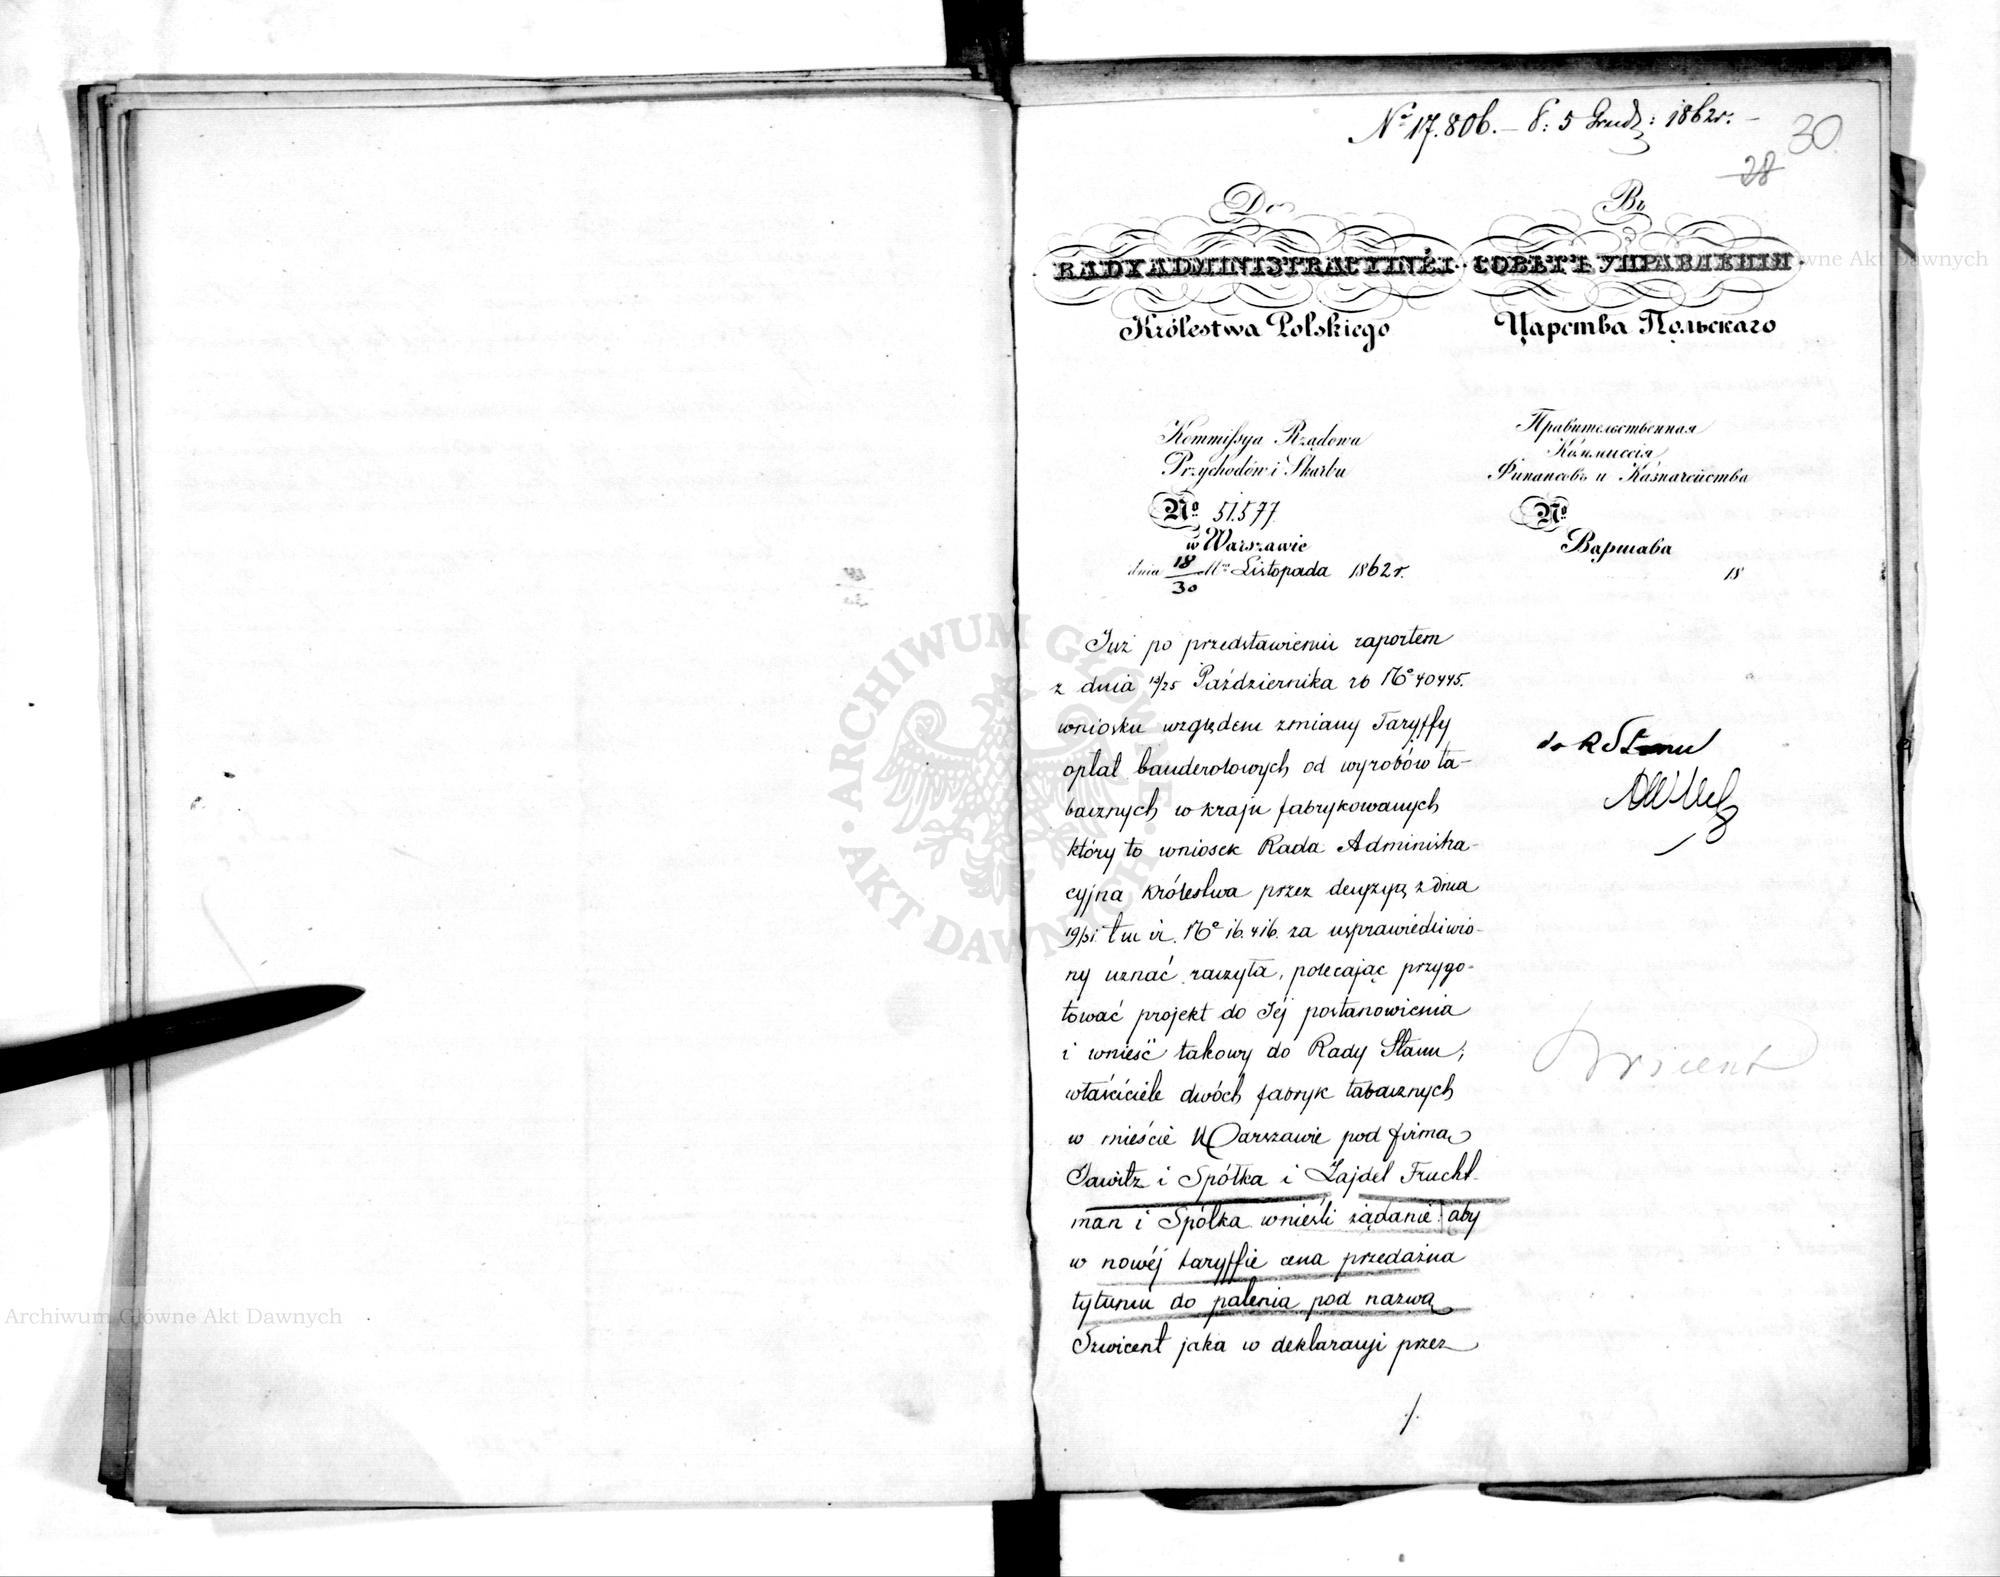 No 17.806. – 5 Grudz: 1862r. –
30.
28
Do
RADY ADMINISTRACYINÉI
Królestwa Polskiego
Въ
СОВѢТЪ УПРАВЛЕНІЯ.
Царства Польскаго
Kommissya Rządowa
Przychodów i Skarbu
No 51.577.
w Warszawie
dnia 18/30 Mca Listopada 1862 r.
Правительственная
Коммиссія
Финансовъ и Казначейства
No
Варшава
18
Już po przedstawieniu raportem
z dnia 13/25 Października rb No 40445.
wniosku względem zmiany Taryffy
opłat banderolowych od wyrobów ta-
bacznych w kraju fabrykowanych
który to wniosek Rada Administra-
cyjna Królestwa przez decyzyą z dnia
19/31. No 16.416. za usprawiedliwio-
ny uznać raczyła, polecając przygo-
tować projekt do Jéj postanowienia
i wnieść takowy do Rady Stanu;
właściciele dwóch fabryk tabacznych
w mieście Warszawie pod firmą
i Spółka i Zajdel Frucht-
man i Spółka wnieśli żądanie aby
w nowéj taryffie cena przedażna
tytuniu do palenia pod nazwą
Szwicent jaka w deklaracyi przez
./.
do R Stanu
Szwicent
Archiwum Główne Akt Dawnych
ARCHIWUM GŁÓWNE
· AKT DAWNYCH ·